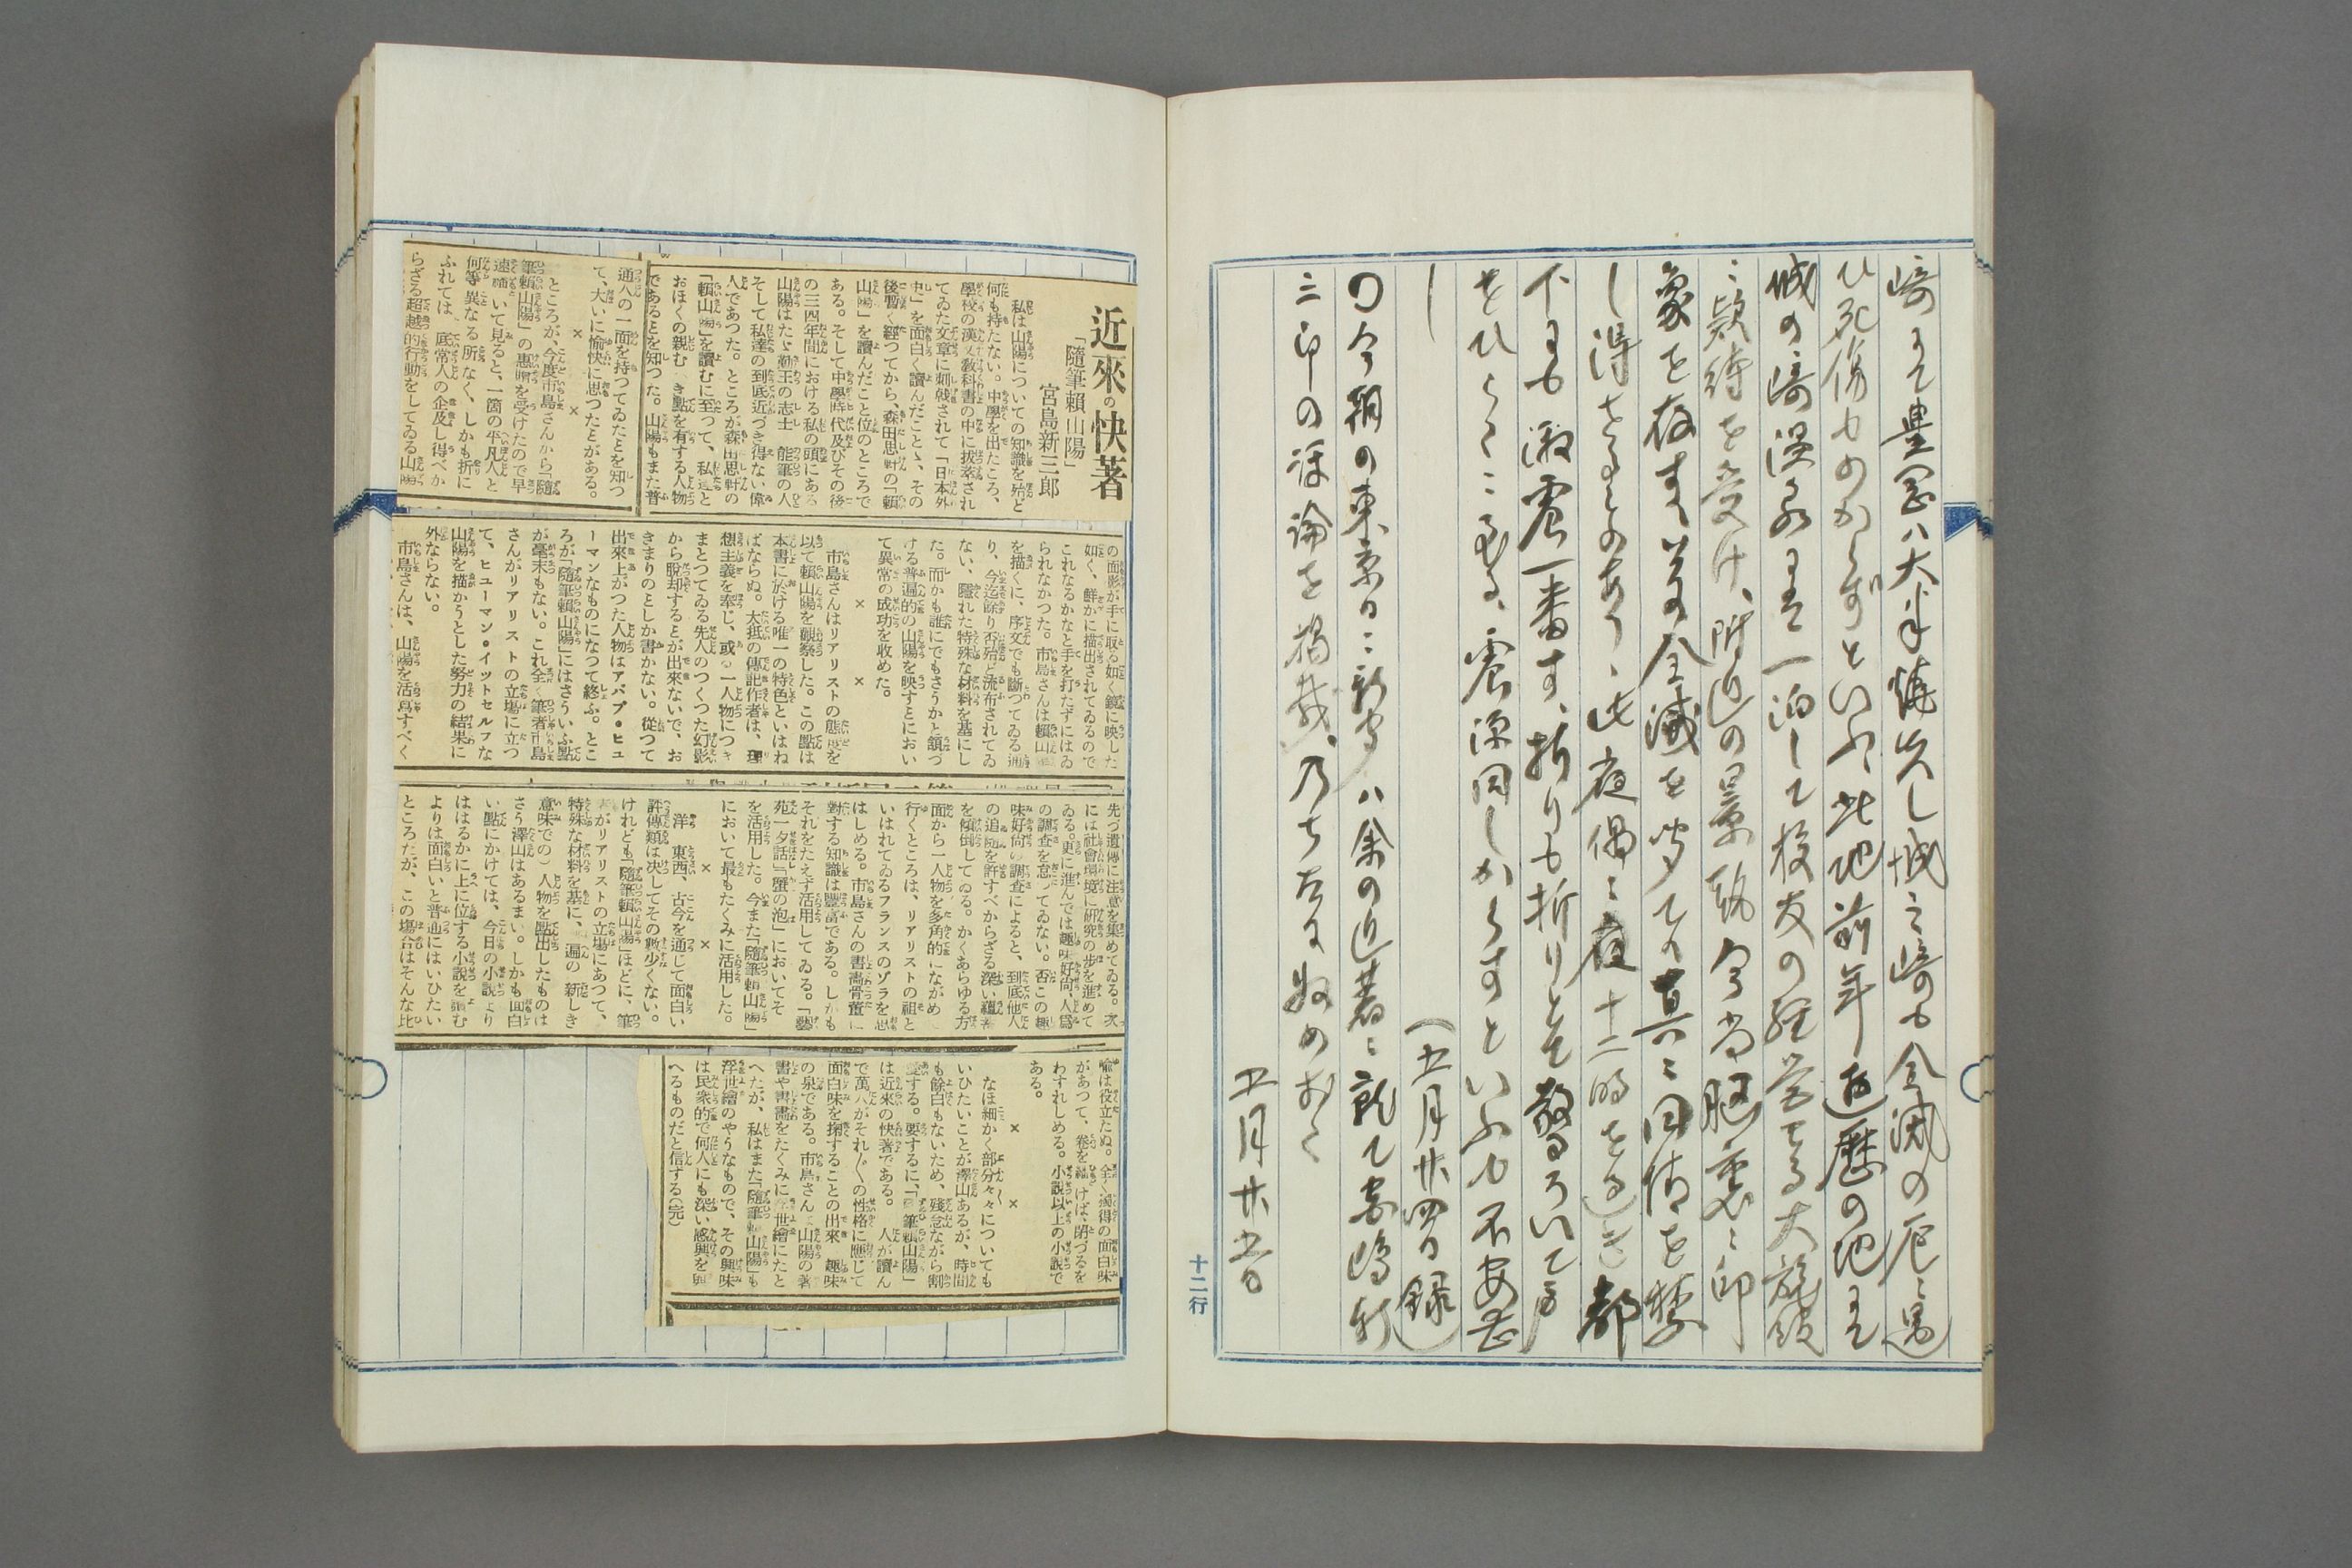 崎にて豊岡ハ大半燒失し城之崎も全滅の厄ニ遇
ひ死傷も少からずといふ、此地前年遊歴の地にて
城の崎溫泉にて一泊して校友の経営する大旅館
ニ款待を受け、附近の景致今尚腦裏ニ印
象を存す、其の全滅を聞ての真ニ同情を禁
し得さるものあり、此夜偶ニ夜十二時を過き都
下にも激震一番す、折りも折りとて驚ろいて戸
をひらくニ至る、震源同しからすといふも不安甚
し
（五月廿四日録）
〇今朝の東京日ニ新聞ハ余の近著ニ就て宮嶋新
三郎の評論を掲載、乃ち左に収めおく
五月廿五日
十二行
近來の快著
「隨筆賴山陽」
宮島新三郎
私は山陽についての知識を殆ど
何も持たない。中學を出たころ、
學校の漢文敎科書の中に拔萃され
てゐた文章に刺戟されて「日本外
史」を面白く讀んだことゝ、その
後暫く經つてから、森田思軒の「賴
山陽」を讀んだこと位のところで
ある。そして中學時代及びその後
の三四年間における私の頭にある
山陽はたゞ勤王の志士、能筆の人
そして私達の到底近づき得ない偉
人であつた。ところが森田思軒の
「賴山陽」を讀むに至つて、私達と
おほくの親むべき點を有する人物
であるとを知つた。山陽もまた普
通人の一面を持つてゐたとを知つ
て、大いに愉快に思つたとがある。
×　　×
ところが、今度市島さんから「隨
筆賴山陽」の惠贈を受けたので早
速繙いて見ると、一箇の平凡人と
何等異なる所なく、しかも折に
ふれては、底常人の企及し得べか
らざる超越的行動をしてゐる山陽
の面影が手に取る如く鏡に映した
如く、鮮かに描出されてゐるので
これなるかなと手を打たずにはゐ
られなかつた。市島さんは賴山陽
を描くに、序文でも斷つてゐる通
り、今迄餘り否殆ど流布されてゐ
ない、隱れた特殊な材料を基にし
た。而かも誰にでもさうかと頷づ
ける普遍的の山陽を映すとにおい
て異常の成功を收めた。
×　　×
市島さんはリアリストの態度を
以て賴山陽を觀察した。この點は
本書に於ける唯一の特色といはね
ばならぬ。大抵の傳記作者は、理
想主義を奉じ、或る一人物につき
まとつてゐる先人のつくつた幻影
から脫却するとが出來ないで、お
きまりのとしか書かない。從つて
出來上がつた人物はアバブ・ヒュ
ーマンなものになつて終ふ。とこ
ろが「隨筆賴山陽」にはさういふ點
が毫末もない。これ全く筆者市島
さんがリアリストの立場に立つ
て、ヒューマン・イットセルフな
山陽を描かうとした努力の結果に
外ならない。
市島さんは、山陽を活寫すべく
先づ遺傳に注意を集めてゐる。次
には社會環境に硏究の步を進めて
ゐる。更に進んでは趣味好尙、人爲
の調査を怠つてゐない。否この趣
味好尙の調査によると、到底他人
の追隨を許すべからざる深い蘊蓄
を傾倒してゐる。かくあらゆる方
面から一人物を多角的にながめ
行くところは、リアリストの祖と
いはれてゐるフランスのゾラを思
はしめる。市島さんの書畵骨董に
對する知識は豐富である。しかも
それをたえず活用してゐる。「藝
苑一夕話」「蟹の泡」においてそ
を活用した。今また「隨筆賴山陽」
において最もたくみに活用した。
×　　×
洋の東西、古今を通じて面白い
評傳類は決してその數少くない。
けれども「隨筆賴山陽」ほどに、筆
者がリアリストの立場にあつて、
特殊な材料を基に、普遍の（新しき
意味での）人物を點出したものは
さう澤山はあるまい。しかも面白
い點にかけては、今日の小說より
ははるかに上に位する小說を讀む
よりは面白いと普通にはいひたい
ところだが、この場合はそんな比
喩は役立たぬ。全く獨得の面白味
があつて、卷を繙けば、閉づるを
わすれしめる。小說以上の小說で
ある。
×　　×
なほ細かく部分々々についても
いひたいことが澤山あるが、時間
も餘白もないため、殘念ながら割
愛する。要するに、「隨筆賴山陽」
は近來の快著である。　人が讀ん
で萬人がそれ〴〵の性格に應じて
面白味を掬することの出來る趣味
の泉である。市島さんは山陽の著
書や書畵をたくみに浮世繪にたと
へたが、私はまた「隨筆賴山陽」も
浮世繪のやうなもので、その興味
は民衆的で何人にも深い感興を與
へるものだと信ずる（完）